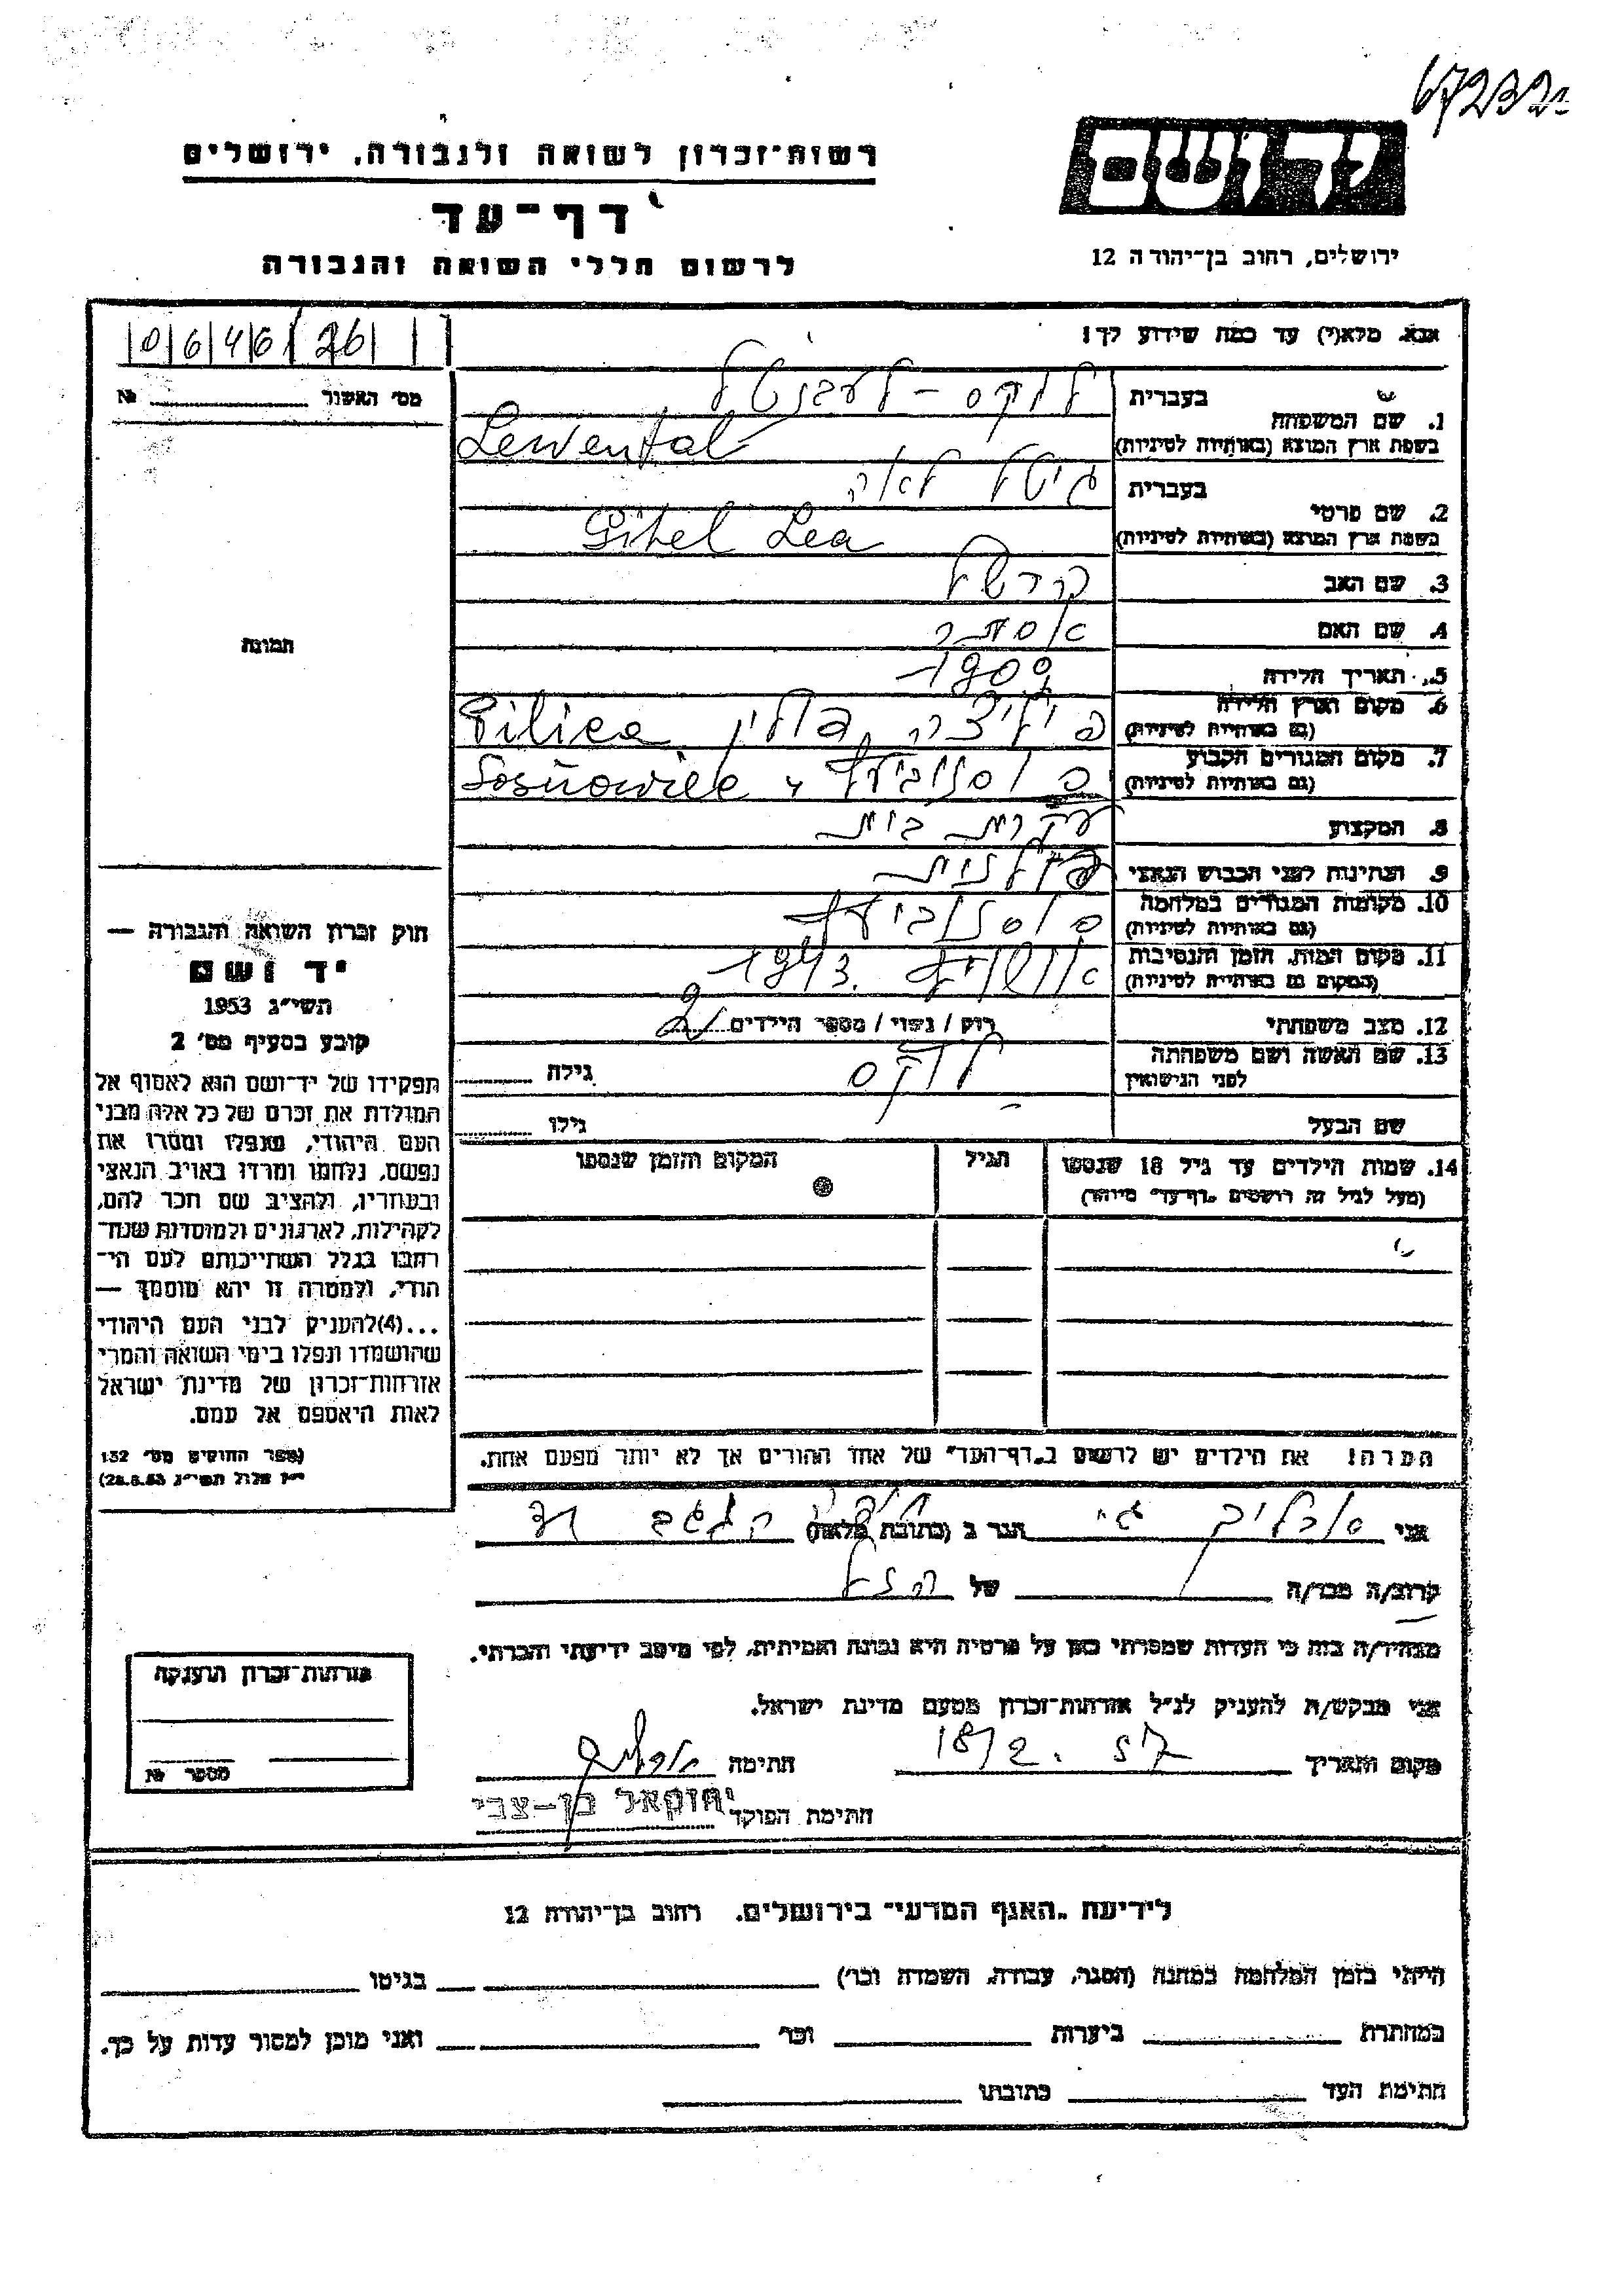 67232
רשות־זכרון לשואה ולגבורה, ירושלים
דף־עד
לרשום חללי השואה והגבורה
יד ושם
ירושלים, רחוב בן־יהודה 12
0646/26
אנא, מלא(י) עד כמה שידוע לך!
מס׳ האשור № 
1. שם המשפחה בעברית
בשפת ארץ המוצא (באותיות לטיניות) Lewental
2. שם פרטי בעברית גיטל לאה
בשפת ארץ המוצא (באותיות לטיניות) Gitel Lea
3. שם האב
4. שם האם אסתר
5. תאריך הלידה 1900
6. מקום וארץ הלידה (גם באותיות לטיניות) פיליצה, פולין Pilica
7. מקום המגורים הקבוע (גם באותיות לטיניות) סוסנוביץ Sosnowiec
8. המקצוע עקרת בית
9. הנתינות לפני הכבוש הנאצי פולנית
10. מקומות המגורים במלחמה (גם באותיות לטיניות) סוסנוביץ
11. מקום המות, הזמן והנסיבות (המקום גם באותיות לטיניות) אושויץ 1943.
12. מצב משפחתי רוק / נשוי / מספר הילדים 2
13. שם האשה ושם משפחתה לפני הנישואין לוקס גילה
שם הבעל גילו
14. שמות הילדים עד גיל 18 שנספו (מעל לגיל זה רושמים „דף־עד״ מיוחד) הגיל המקום והזמן שנספו
הערה! את הילדים יש לרשום ב„דף־העד״ של אחד ההורים אך לא יותר מפעם אחת.
תמונה
חוק זכרון השואה והגבורה —
יד ושם
תשי״ג 1953
קובע בסעיף מס׳ 2
תפקידו של יד־ושם הוא לאסוף אל
המולדת את זכרם של כל אלה מבני
העם היהודי, שנפלו ומסרו את
נפשם, נלחמו ומרדו באויב הנאצי
ובעוזריו, ולהציב שם וזכר להם,
לקהילות, לארגונים ולמוסדות שנח־
רבו בגלל השתייכותם לעם הי־
הודי, ולמטרה זו יהא מוסמך —
...(4)להעניק לבני העם היהודי
שהושמדו ונפלו בימי השואה והמרי
אזרחות־זכרון של מדינת ישראל
לאות היאספם אל עמם.
(ספר החוקים מס׳ 132
י״ז אלול תשי״ג 28.8.53)
אני הגר ב (כתובת מלאה)
קרוב/ה מכר/ה של
מצהיר/ה בזה כי העדות שמסרתי כאן על פרטיה היא נכונה ואמיתית, לפי מיטב ידיעתי והכרתי.
אני מבקש/ת להעניק לנ״ל אזרחות־זכרון מטעם מדינת ישראל.
מקום ותאריך חתימה
חתימת הפוקד יחזקאל בן־צבי
אזרחות־זכרון הוענקה
מספר №
לידיעת „האגף המדעי״ בירושלים. רחוב בן־יהודה 12
הייתי בזמן המלחמה במחנה (הסגר, עבודה, השמדה וכו׳) בגיטו
במחתרת ביערות וכו׳ ואני מוכן למסור עדות על כך.
חתימת העד כתובתו